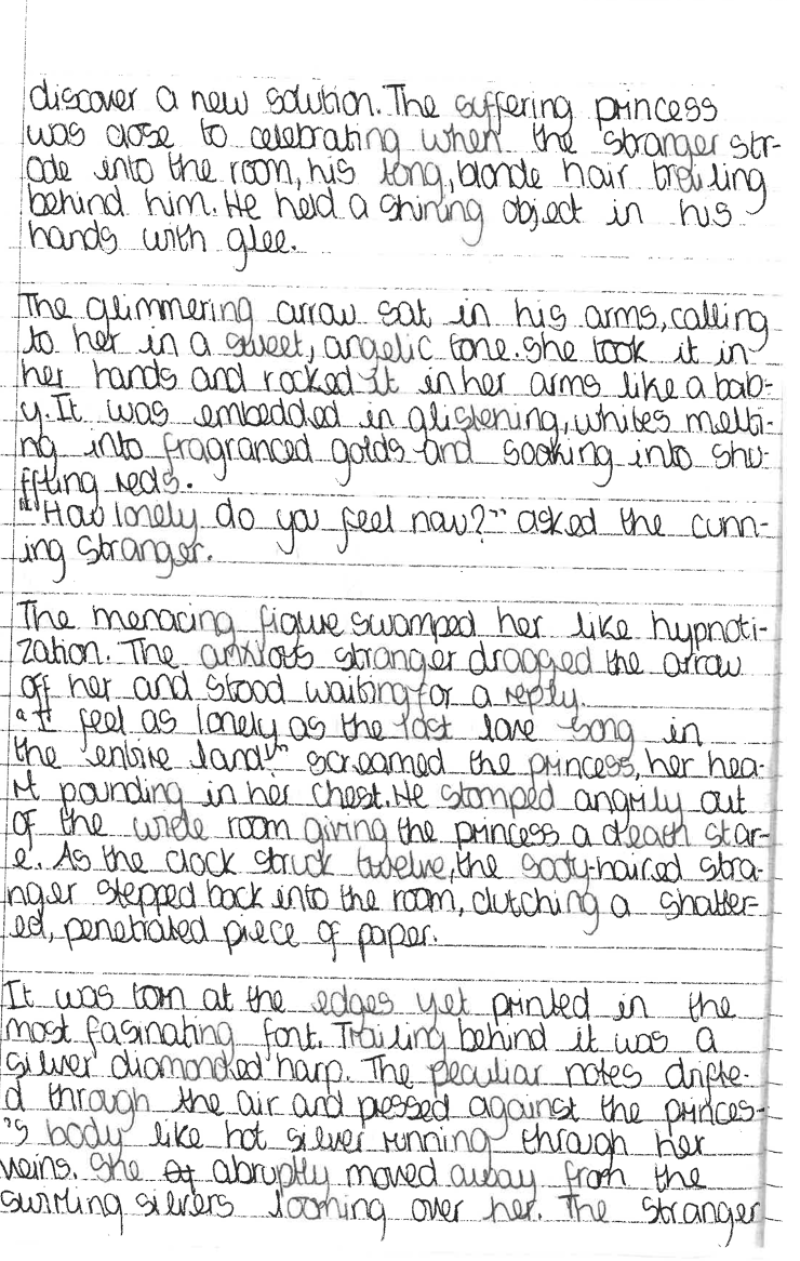 discover a new solution. The suffering princess
was close to celebrating when the stranger str-
ode into the room, his long, blonde hair treiling
behind him. He held a shining object in his
hands with glee.
The glimmering arrow sat in his arms, calling
to her in a sweet, angelic tone. She took it in
her hands and rocked it in her arms like a bab-
y. It was embedded in glistening, whites melti-
ng into fragranced golds and soaking into shu-
ffling reds.
"How lonely do you feel now?" asked the cunn-
ing stranger.
The menacing figure swamped her like hypnoti-
zation. The anxious stranger dragged the arrow
off her and stood waiting for a reply.
"I feel as lonely as the last love song in
the entire land!" screamed the princess, her hea-
rt pounding in her chest. He stomped angrily out
of the wide room giving the princess a death star-
e. As the clock struck twelve, the sooty-haired stra-
nger stepped back into the room, clutching a shatter-
ed, penetrated piece of paper.
It was torn at the edges yet printed in the
most fasinating font. Trailing behind it was a
silver diamonded harp. The peculiar notes drifte-
d through the air and pressed against the princes-
's body like hot silver running through her
veins. She abruptly moved away from the
swirling silvers looming over her. The stranger